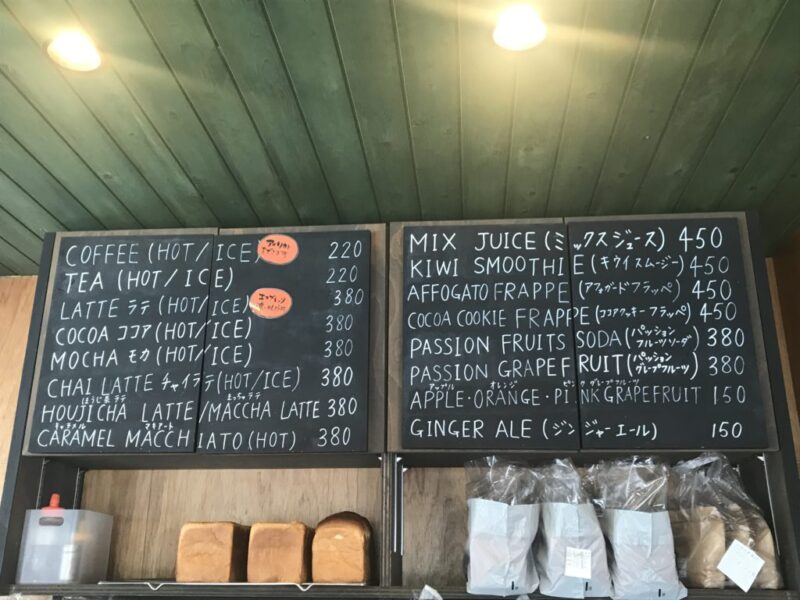 COFFEE (HOT/ICE) 220
TEA (HOT/ICE) 220
LATTE ラテ (HOT/ICE) 380
COCOA ココア (HOT/ICE) 380
MOCHA モカ (HOT/ICE) 380
CHAI LATTE チャイラテ (HOT/ICE) 380
ほうじ茶 ラテ まっちゃ ラテ
HOUJICHA LATTE/MACCHA LATTE 380
キャラメル マキアート
CARAMEL MACCHIATO (HOT) 380
MIX JUICE (ミックスジュース) 450
KIWI SMOOTHIE (キウイスムージー) 450
AFFOGATO FRAPPE (アフォガードフラッペ) 450
COCOA COOKIE FRAPPE (ココアクッキーフラッペ) 450
PASSION FRUITS SODA (パッションフルーツソーダ) 380
PASSION GRAPEFRUIT (パッショングレープフルーツ) 380
アップル オレンジ ピンクグレープフルーツ
APPLE・ORANGE・PINK GRAPEFRUIT 150
GINGER ALE (ジンジャーエール) 150